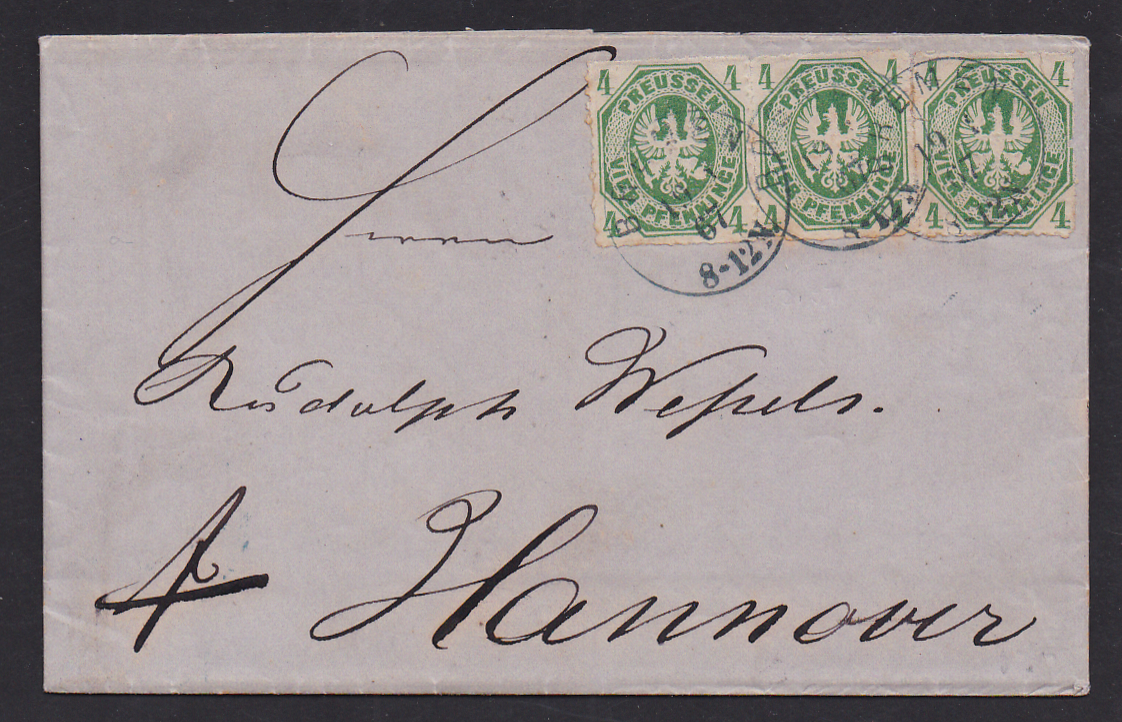 4 4 4 4 4 4
PREUSSEN PREUSSEN PREUSSEN
VIER PFENNINGE PFENNINGE VIER PFENNINGE
4 4 4 4 4 4
BARMEN
19 1
67
8-12N.
Herrn
Rudolph Wessels.
Hannover